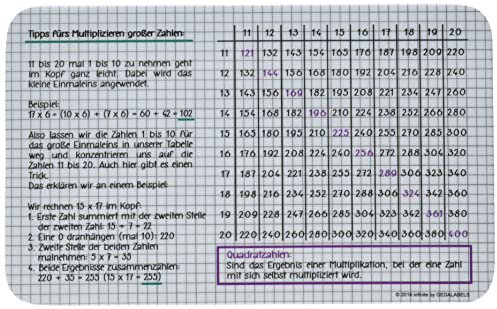 Tipps fürs Multiplizieren großer Zahlen:
11 bis 20 mal 1 bis 10 zu nehmen geht
im Kopf ganz leicht. Dabei wird das
kleine Einmaleins angewendet.
Beispiel:
17 x 6 = (10 x 6) + (7 x 6) = 60 + 42 = 102
Also lassen wir die Zahlen 1 bis 10 für
das große Einmaleins in unserer Tabelle
weg und konzentrieren uns auf die
Zahlen 11 bis 20. Auch hier gibt es einen
Trick.
Das erklären wir an einem Beispiel:
Wir rechnen 15 x 17 im Kopf:
1. Erste Zahl summiert mit der zweiten Stelle
der zweiten Zahl: 15 + 7 = 22
2. Eine 0 dranhängen (mal 10): 220
3. Zweite Stelle der beiden Zahlen
malnehmen: 5 x 7 = 35
4. Beide Ergebnisse zusammenzählen:
220 + 35 = 255 (15 x 17 = 255)
11 12 13 14 15 16 17 18 19 20
11 121 132 143 154 165 176 187 198 209 220
12 132 144 156 168 180 192 204 216 228 240
13 143 156 169 182 195 208 221 234 247 260
14 154 168 182 196 210 224 238 252 266 280
15 165 180 195 210 225 240 255 270 285 300
16 176 192 208 224 240 256 272 288 304 320
17 187 204 221 238 255 272 289 306 323 340
18 198 216 234 252 270 288 306 324 342 360
19 209 228 247 266 285 304 323 342 361 380
20 220 240 260 280 300 320 340 360 380 400
Quadratzahlen:
Sind das Ergebnis einer Multiplikation, bei der eine Zahl
mit sich selbst multipliziert wird.
© 2016 infinite by GEDALABELS